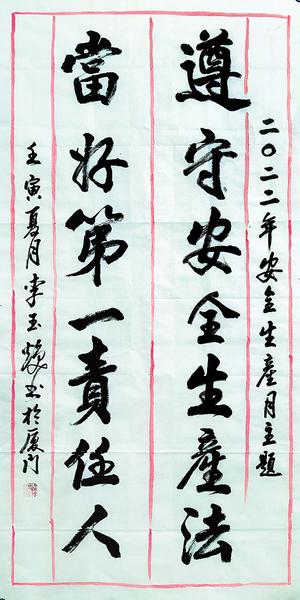 二〇二二年安全生產月主題
遵守安全生產法
當好第一責任人
壬寅夏月李玉書於廈門